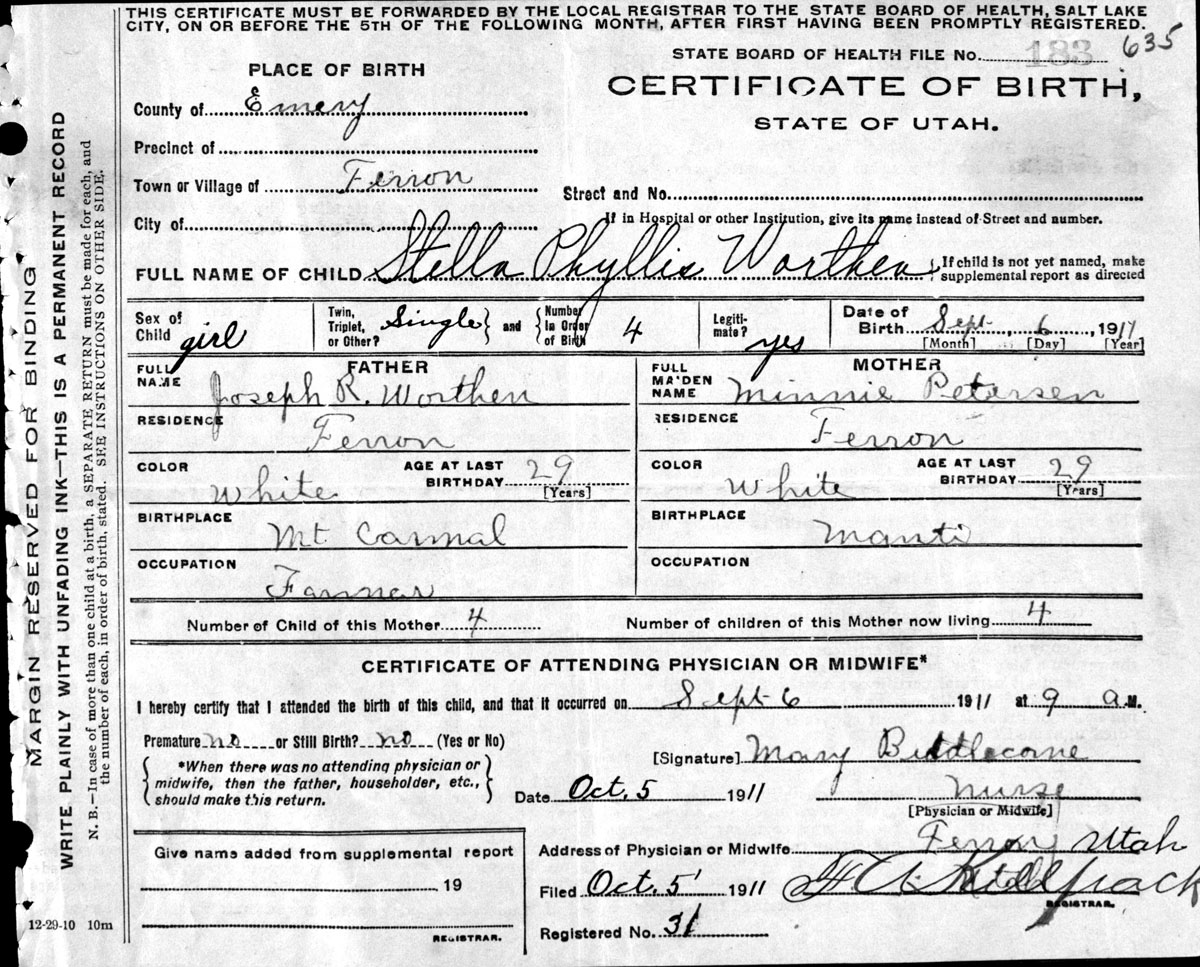 THIS CERTIFICATE MUST BE FORWARDED BY THE LOCAL REGISTRAR TO THE STATE BOARD OF HEALTH, SALT LAKE
CITY, ON OR BEFORE THE 5TH OF THE FOLLOWING MONTH, AFTER FIRST HAVING BEEN PROMPTLY REGISTERED.
STATE BOARD OF HEALTH FILE No. 183 635
PLACE OF BIRTH
CERTIFICATE OF BIRTH,
STATE OF UTAH.
County of Emery
Precinct of
Town or Village of Ferron
Street and No.
City of
If in Hospital or other Institution, give its name instead of Street and number.
FULL NAME OF CHILD Stella Phyllis Worthen { If child is not yet named, make
supplemental report as directed
Sex of Child girl
Twin, Triplet, or Other? Single } and { Number in Order of Birth 4
Legiti- mate? yes
Date of Birth Sept. 6, 1911
[Month] [Day] [Year]
FATHER
FULL NAME Joseph R. Worthen
RESIDENCE Ferron
COLOR White
AGE AT LAST BIRTHDAY 29
[Years]
BIRTHPLACE Mt Carmal
OCCUPATION Farmer
MOTHER
FULL MAIDEN NAME Minnie Petersen
RESIDENCE Ferron
COLOR White
AGE AT LAST BIRTHDAY 29
[Years]
BIRTHPLACE Manti
OCCUPATION
Number of Child of this Mother 4
Number of children of this Mother now living 4
CERTIFICATE OF ATTENDING PHYSICIAN OR MIDWIFE*
I hereby certify that I attended the birth of this child, and that it occurred on Sept 6 1911 at 9 a.M.
Premature no or Still Birth? no (Yes or No)
*When there was no attending physician or
midwife, then the father, householder, etc.,
should make this return.
[Signature] Mary Biddlecome
Date Oct. 5 1911
Nurse
[Physician or Midwife]
Address of Physician or Midwife Ferron, Utah
Filed Oct. 5 1911
REGISTRAR.
Registered No. 31
Give name added from supplemental report
19
REGISTRAR.
12-29-10 10m
MARGIN RESERVED FOR BINDING
WRITE PLAINLY WITH UNFADING INK—THIS IS A PERMANENT RECORD
N. B.—In case of more than one child at a birth, a SEPARATE RETURN must be made for each, and
the number of each, in order of birth, stated. SEE INSTRUCTIONS ON OTHER SIDE.